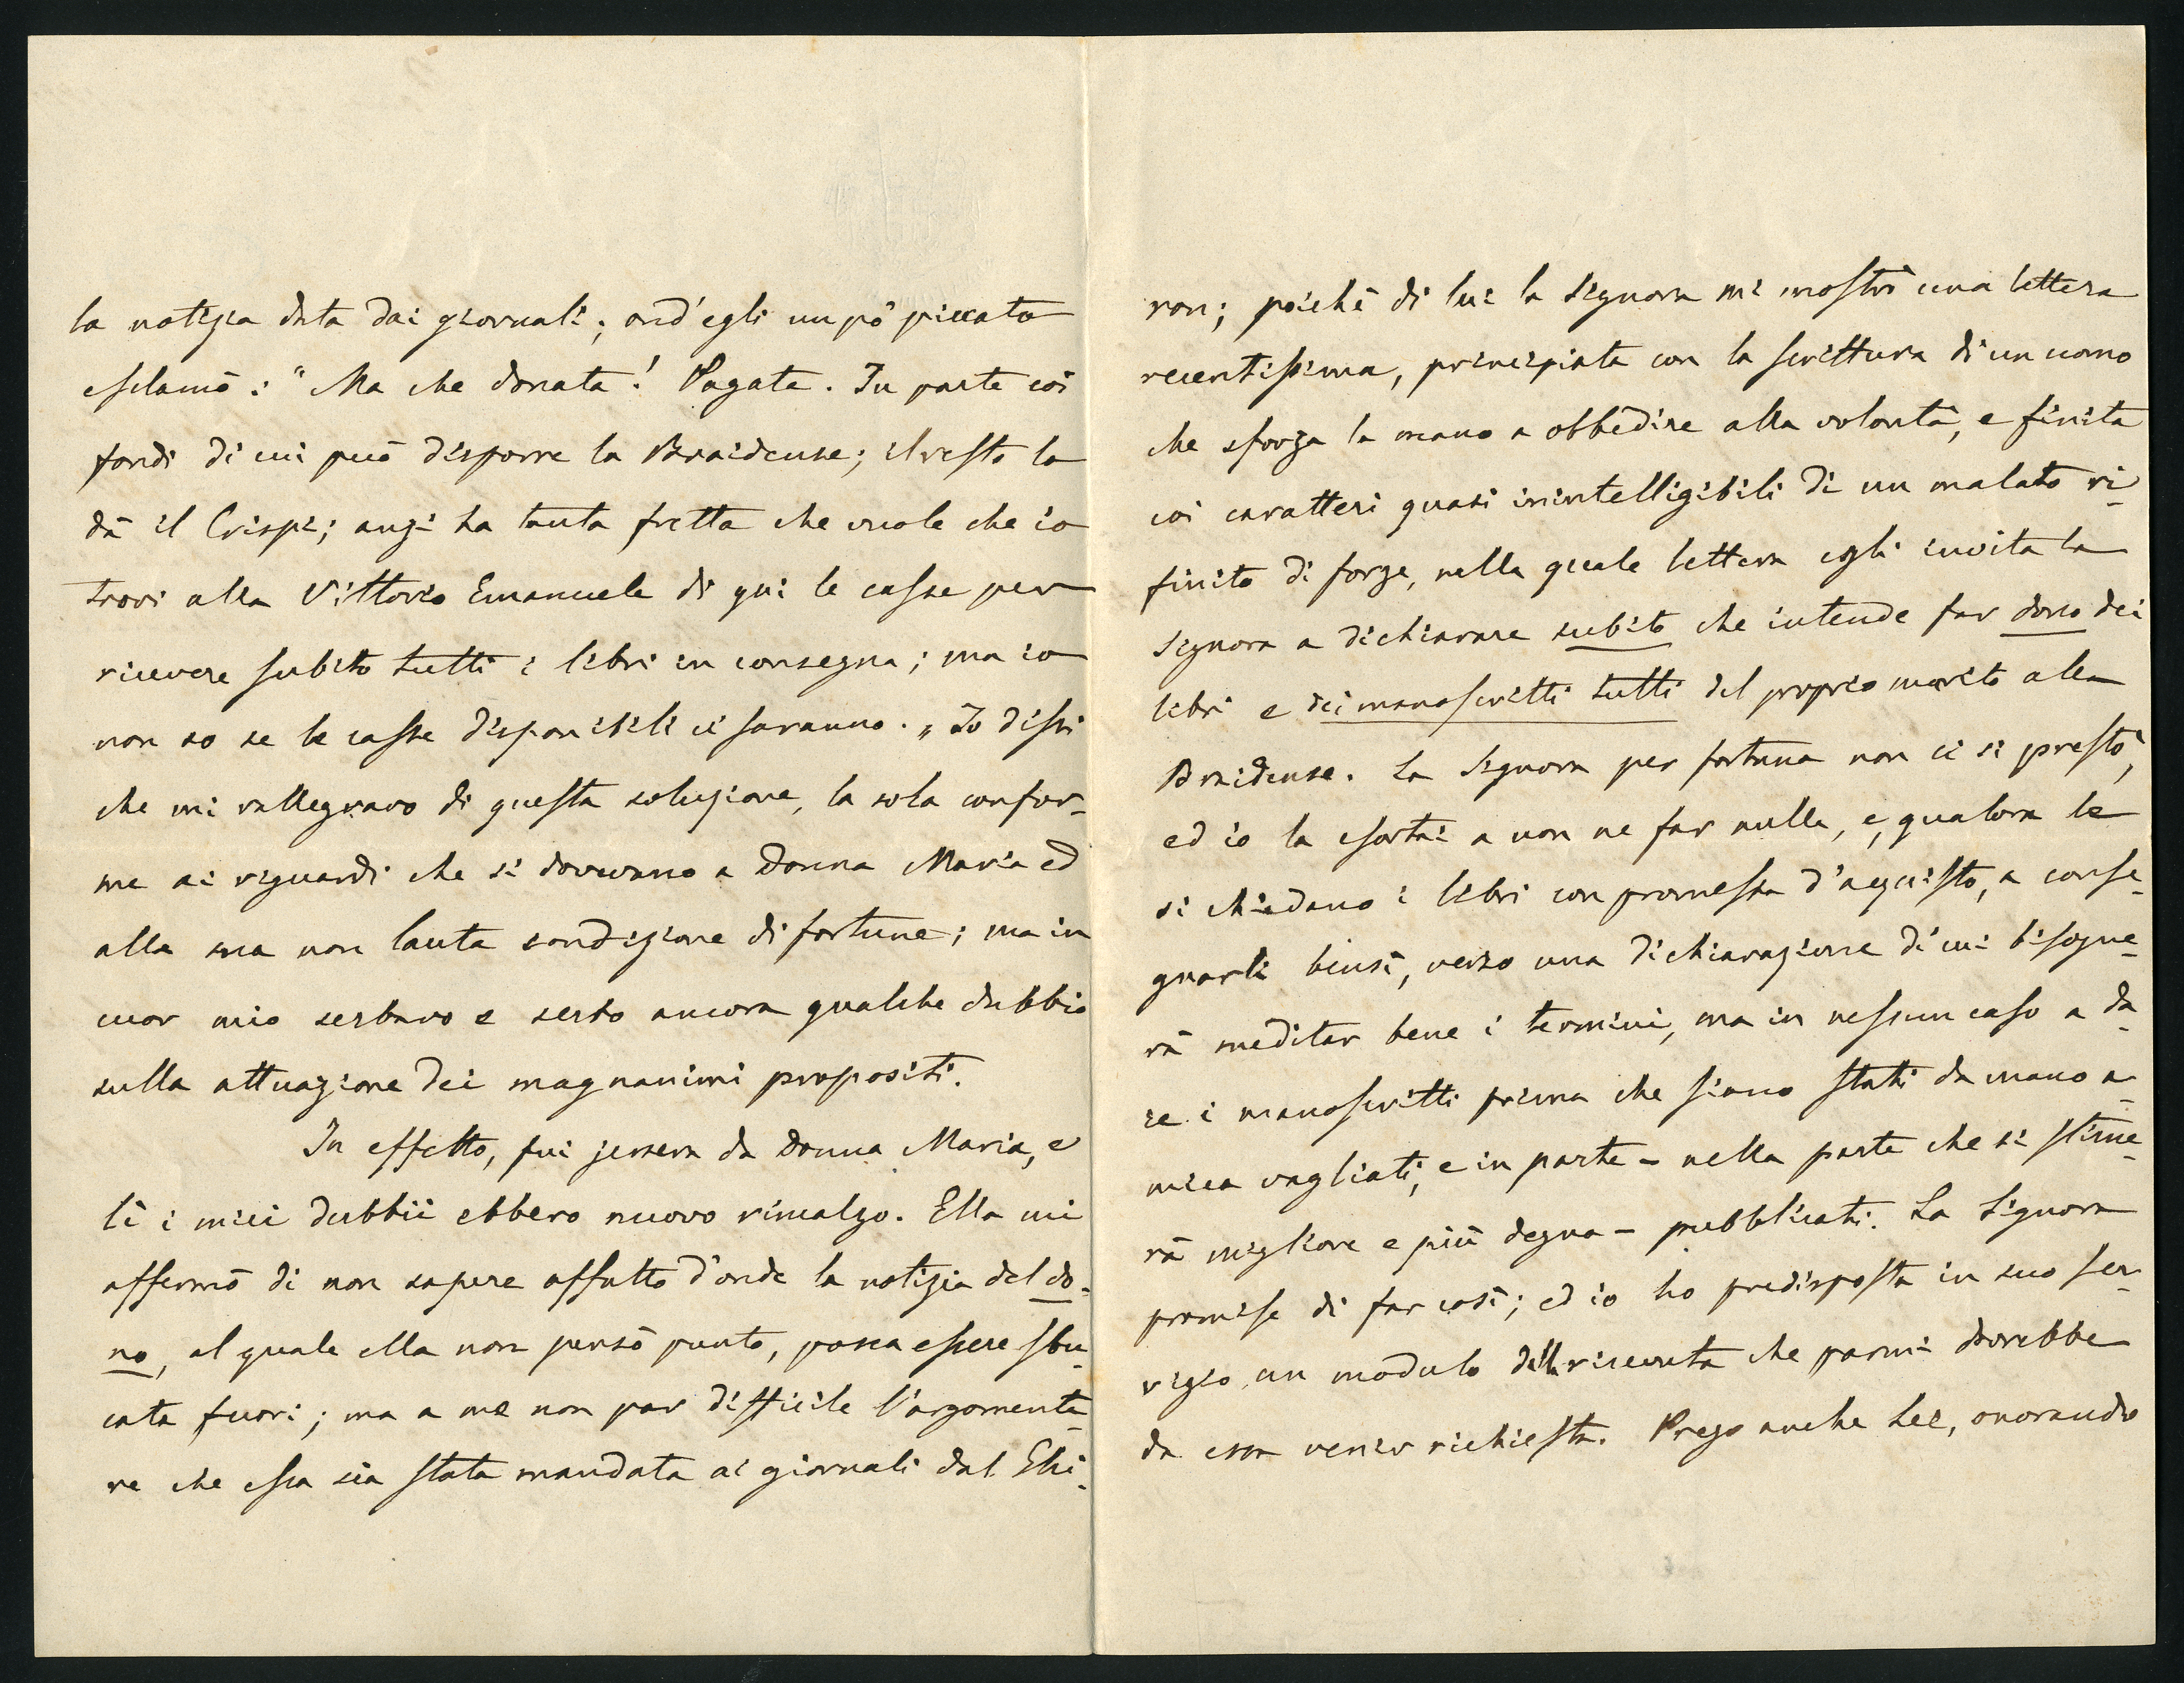 la notizia data dai giornali; ond'egli un pò piccato
esclamò: "Ma che donata! Pagata. In parte coi
fondi di cui può disporre la Braidense; il resto lo
dà il Crispi; anzi ha tanta fretta che vuole che io
trovi alla Vittorio Emanuele di qui le casse per
ricevere subito tutti i libri in consegna; ma io
non so se le casse disponibili ci saranno. „ Io dissi
che mi rallegravo di questa soluzione, la sola confor-
me ai riguardi che si dovevano a Donna Maria ed
alla sua non lauta condizione di fortune; ma in
cuor mio serbavo e serbo ancora qualche dubbio
sulla attuazione dei magnanimi propositi.
In effetto, fui jersera da Donna Maria, e
lì i miei dubbii ebbero nuovo rincalzo. Ella mi
affermò di non sapere affatto d'onde la notizia del do-
no, al quale ella non pensò punto, possa essere sbu-
cata fuori; ma a me non par difficile l'argomenta-
re che essa sia stata mandata ai giornali dal Ghi-
ron; poichè di lui la Signora mi mostrò una lettera
recentissima, principiata con la scrittura di un uomo
che sforza la mano a obbedire alla volontà, e finita
coi caratteri quasi inintelligibili di un malato ri-
finito di forze, nella quale lettera egli invita la
Signora a dichiarare subito che intende far dono dei
libri e dei manoscritti tutti del proprio marito alla
Braidense. La Signora per fortuna non ci si prestò,
ed io la esortai a non ne far nulla, e, qualora le
si chiedano i libri con promessa d'acquisto, a conse-
gnarli bensì, verso una dichiarazione di cui bisogne-
rà meditar bene i termini, ma in nessun caso a da-
re i manoscritti prima che siano stati da mano a-
mica vagliati, e in parte - nella parte che si stime-
rà migliore e più degna - pubblicati. La Signora
promise di far così; ed io ho predisposta in suo ser-
vigio un modulo della ricevuta che parmi dovrebbe
da essa venir richiesta. Prego anche Lei, onorando